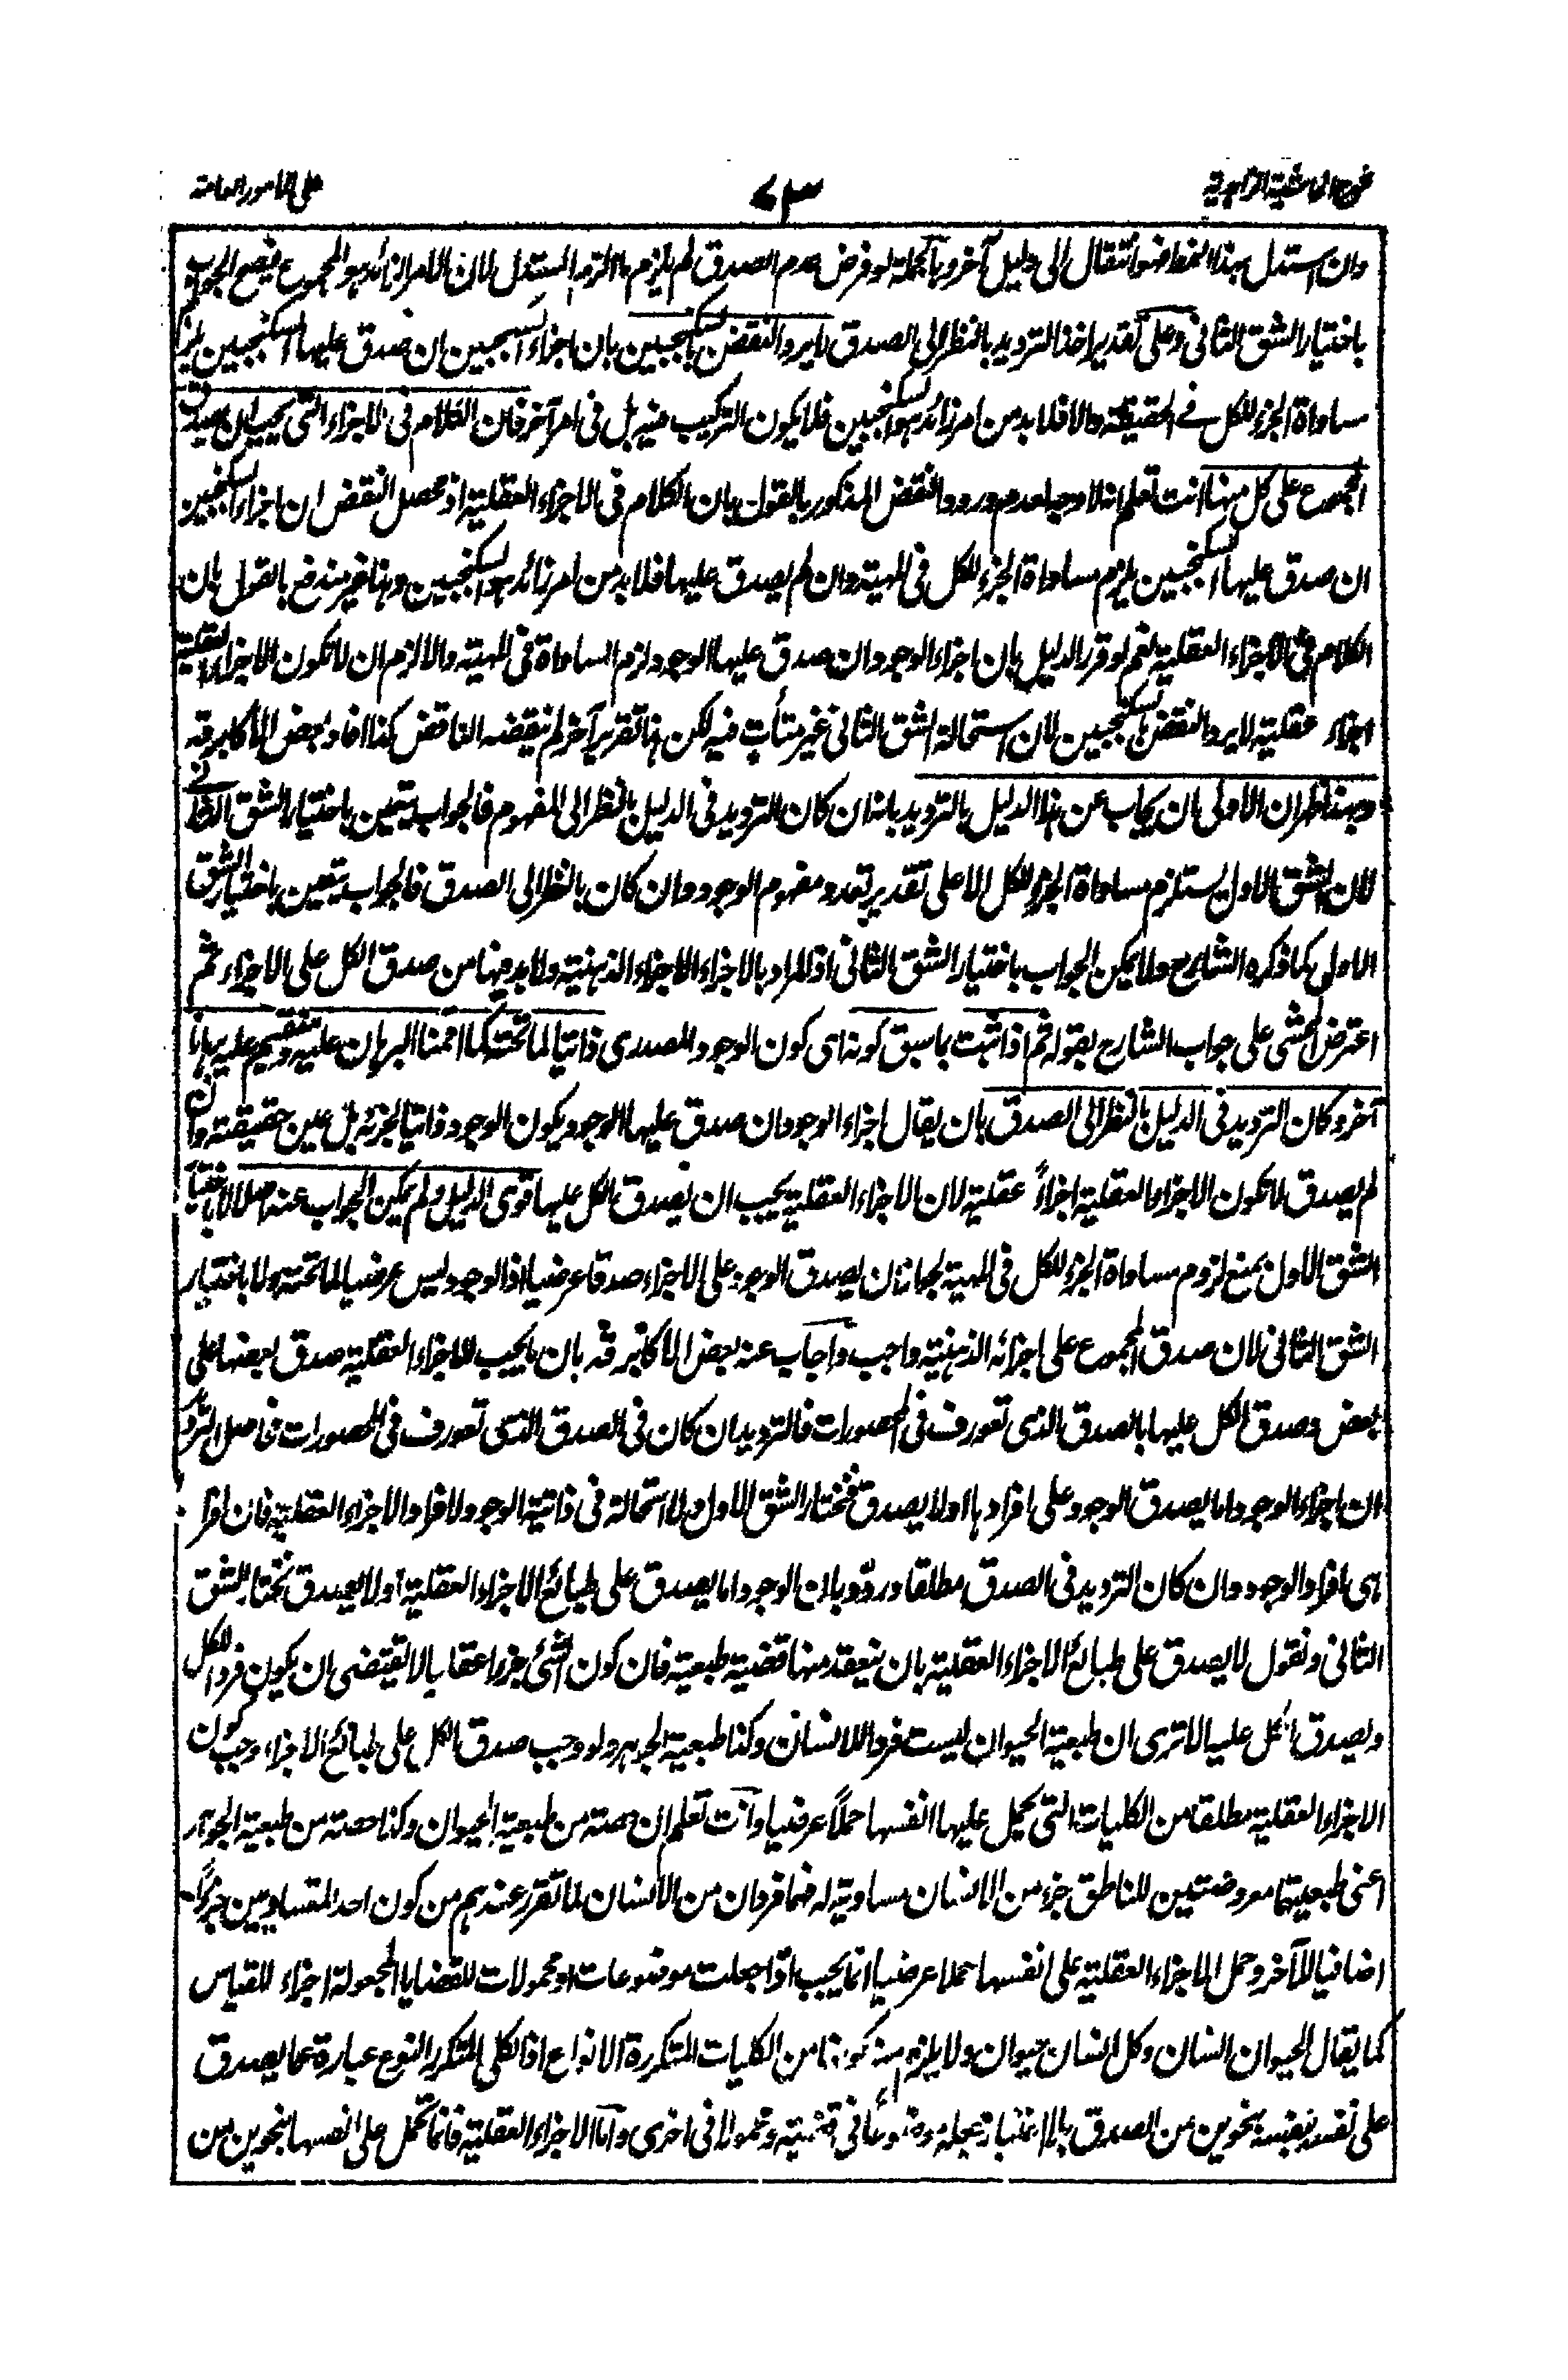 شرح الحاشية الزاهدية
٧٣
على الامور العامة
وان استدل بهذا النمط فهو انتقال الى دليل آخر وبالجملة لو فرض عدم الصدق لم يلزم ما التزمه المستدل لان الامر الزائد هو المجموع فيصح الجواب
باختيار الشق الثاني وعلى تقدير اخذ الترديد بالنظر الى الصدق لا يرد النقض بالسكنجبين بان اجزاء السكنجبين ان صدق عليها السكنجبين يلزم
مساواة الجزء للكل في الحقيقة والا فلا بد من امر زائد هو السكنجبين فلا يكون التركيب فيه بل في امر آخر فان الكلام في الاجزاء التي يجب ان يصدق
المجموع على كل منها انت تعلم انه لا وجه لعدم ورود النقض المذكور بالقول بان الكلام في الاجزاء العقلية اذ محصل النقض ان اجزاء السكنجبين
ان صدق عليها السكنجبين يلزم مساواة الجزء للكل في المهية وان لم يصدق عليها فلا بد من امر زائد هو السكنجبين وهذا غير مندفع بالقول بان
الكلام في الاجزاء العقلية نعم لو قرر الدليل بان اجزاء الوجود ان صدق عليها الوجود لزم المساواة في المهية والا لزم ان لا تكون الاجزاء العقلية
اجزاء عقلية لا يرد النقض بالسكنجبين لان استحالة الشق الثاني غير متأت فيه لكن هذا تقرير آخر لم ينقضه الناقض كذا افاد بعض الاكابر قه
وبهذا ظهر ان الاولى ان يجاب عن هذا الدليل بالترديد بانه ان كان الترديد في الدليل بالنظر الى المفهوم فالجواب يتعين باختيار الشق الثاني
لان الشق الاول يستلزم مساواة الجزء للكل الا على تقدير تعدد مفهوم الوجود وان كان بالنظر الى الصدق فالجواب يتعين باختيار الشق
الاول كما ذكره الشارح ولا يمكن الجواب باختيار الشق الثاني اذ المراد بالاجزاء الاجزاء الذهنية ولا بد فيها من صدق الكل على الاجزاء ثم
اعترض المحشى على جواب الشارح بقوله ثم اذا ثبت بما سبق كونه اى كون الوجود المصدرى ذاتيا لما تحته كما اقمنا البرهان عليه وسنقيم عليه برهانا
آخر وكان الترديد في الدليل بالنظر الى الصدق بان يقال اجزاء الوجود ان صدق عليها الوجود يكون الوجود ذاتيا لجزئه بل عين حقيقته وان
لم يصدق لا تكون الاجزاء العقلية اجزاءً عقلية لان الاجزاء العقلية يجب ان يصدق الكل عليها قوى الدليل ولم يمكن الجواب عنه اصلا لا باختيار
الشق الاول بمنع لزوم مساواة الجزء للكل في المهية بجواز ان يصدق الوجود على الاجزاء صدقا عرضيا اذ الوجود ليس عرضيا لما تحته ولا باختيار
الشق الثاني لان صدق المجموع على اجزائه الذهنية واجب واجاب عنه بعض الاكابر قه بان ما يجب للاجزاء العقلية صدق بعضها على
بعض وصدق الكل عليها بالصدق الذى تعورف في المحصورات فالترديد ان كان في الصدق الذى تعورف في المحصورات فحاصل الترديد
ان اجزاء الوجود اما يصدق الوجود على افرادها اولا يصدق فنختار الشق الاول ولا استحالة في ذاتية الوجود لافراد الاجزاء العقلية فان افرادها
هى افراد الوجود وان كان الترديد في الصدق مطلقا وردد بان الوجود اما يصدق على طبائع الاجزاء العقلية اولا يصدق نختار الشق
الثاني ونقول لا يصدق على طبائع الاجزاء العقلية بان ينعقد منها قضية طبعية فان كون الشئ جزءا عقليا لا يقتضى ان يكون فردا للكل
ويصدق الكل عليه الا ترى ان طبيعة الحيوان ليست فردا للانسان وكذا طبيعة الجوهر ولو وجب صدق الكل على طبائع الاجزاء وجب كون
الاجزاء العقلية مطلقا من الكليات التي يحمل عليها انفسها حملاً عرضيا وانت تعلم ان حصة من طبيعة الحيوان وكذا حصة من طبيعة الجوهر
اعنى طبيعتهما معروضتين للناطق جزء من الانسان مساوية له فهما فردان من الانسان لما تقرر عندهم من كون احد المتساويين جزئيا
اضافيا للآخر وحمل الاجزاء العقلية على انفسها حملا عرضيا انما يجب اذا جعلت موضوعات او محمولات للقضايا المجعولة اجزاء للقياس
كما يقال الحيوان انسان وكل انسان حيوان ولا يلزم منه كونها من الكليات المتكررة الانواع اذ الكلى المتكرر النوع عبارة عما يصدق
على نفسه بنفسه بنحوين من الصدق بلا اعتبار جعله موضوعاً في قضية ومحمولا في اخرى واما الاجزاء العقلية فانما تحمل على انفسها بنحوين من